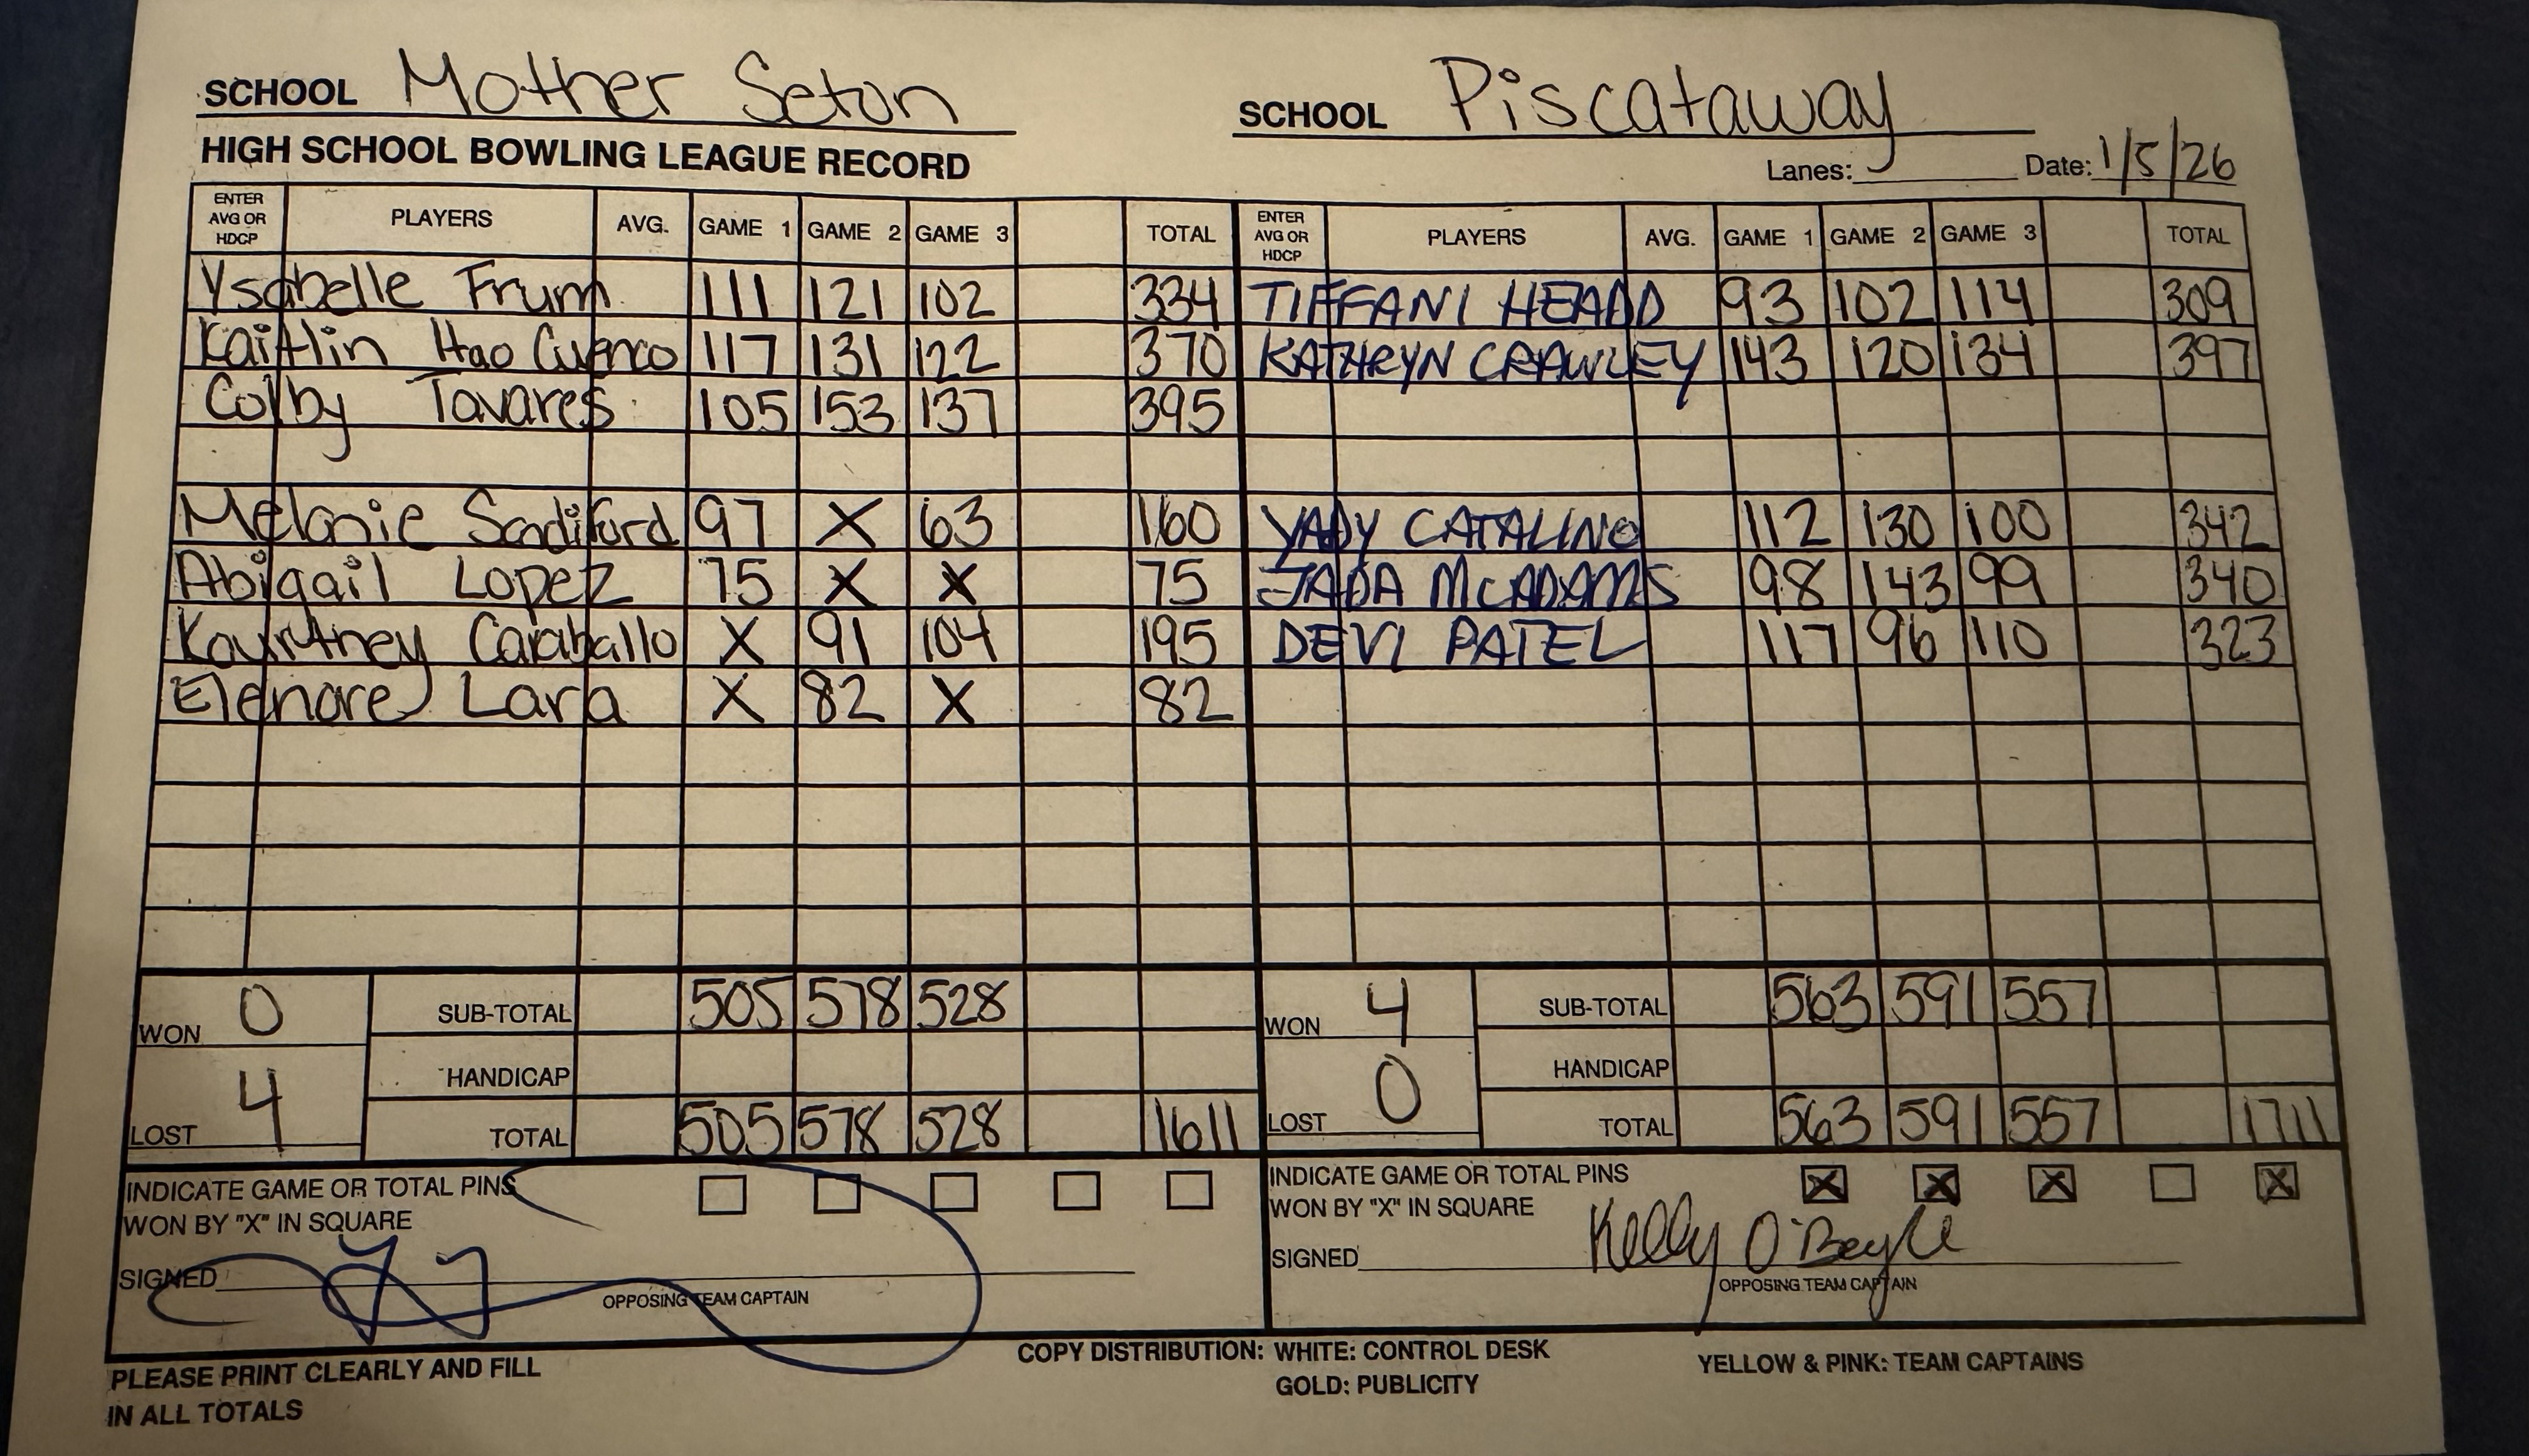 SCHOOL Mother Seton SCHOOL Piscataway
HIGH SCHOOL BOWLING LEAGUE RECORD Lanes: Date: 1/5/26
ENTER AVG OR HDCP PLAYERS AVG. GAME 1 GAME 2 GAME 3 TOTAL ENTER AVG OR HDCP PLAYERS AVG. GAME 1 GAME 2 GAME 3 TOTAL
Ysabelle Frum 111 121 102 334 TIFFANI HEADD 93 102 114 309
Kaitlin Hao Cuenco 117 131 122 370 KATHRYN CRAWLEY 143 120 134 397
Colby Tavares 105 153 137 395
Melanie Sandiford 97 X 63 160 YADY CATALINO 112 130 100 342
Abigail Lopez 75 X X 75 JADA McADAMS 98 143 99 340
Kourtney Caraballo X 91 104 195 DEVI PATEL 117 96 110 323
Elenore Lara X 82 X 82
WON 0 SUB-TOTAL 505 578 528 WON 4 SUB-TOTAL 563 591 557
HANDICAP HANDICAP
LOST 4 TOTAL 505 578 528 1611 LOST 0 TOTAL 563 591 557 1711
INDICATE GAME OR TOTAL PINS INDICATE GAME OR TOTAL PINS X X X X
WON BY "X" IN SQUARE WON BY "X" IN SQUARE
SIGNED SIGNED Kelly O'Boyle
OPPOSING TEAM CAPTAIN OPPOSING TEAM CAPTAIN
PLEASE PRINT CLEARLY AND FILL COPY DISTRIBUTION: WHITE: CONTROL DESK YELLOW & PINK: TEAM CAPTAINS
IN ALL TOTALS GOLD: PUBLICITY